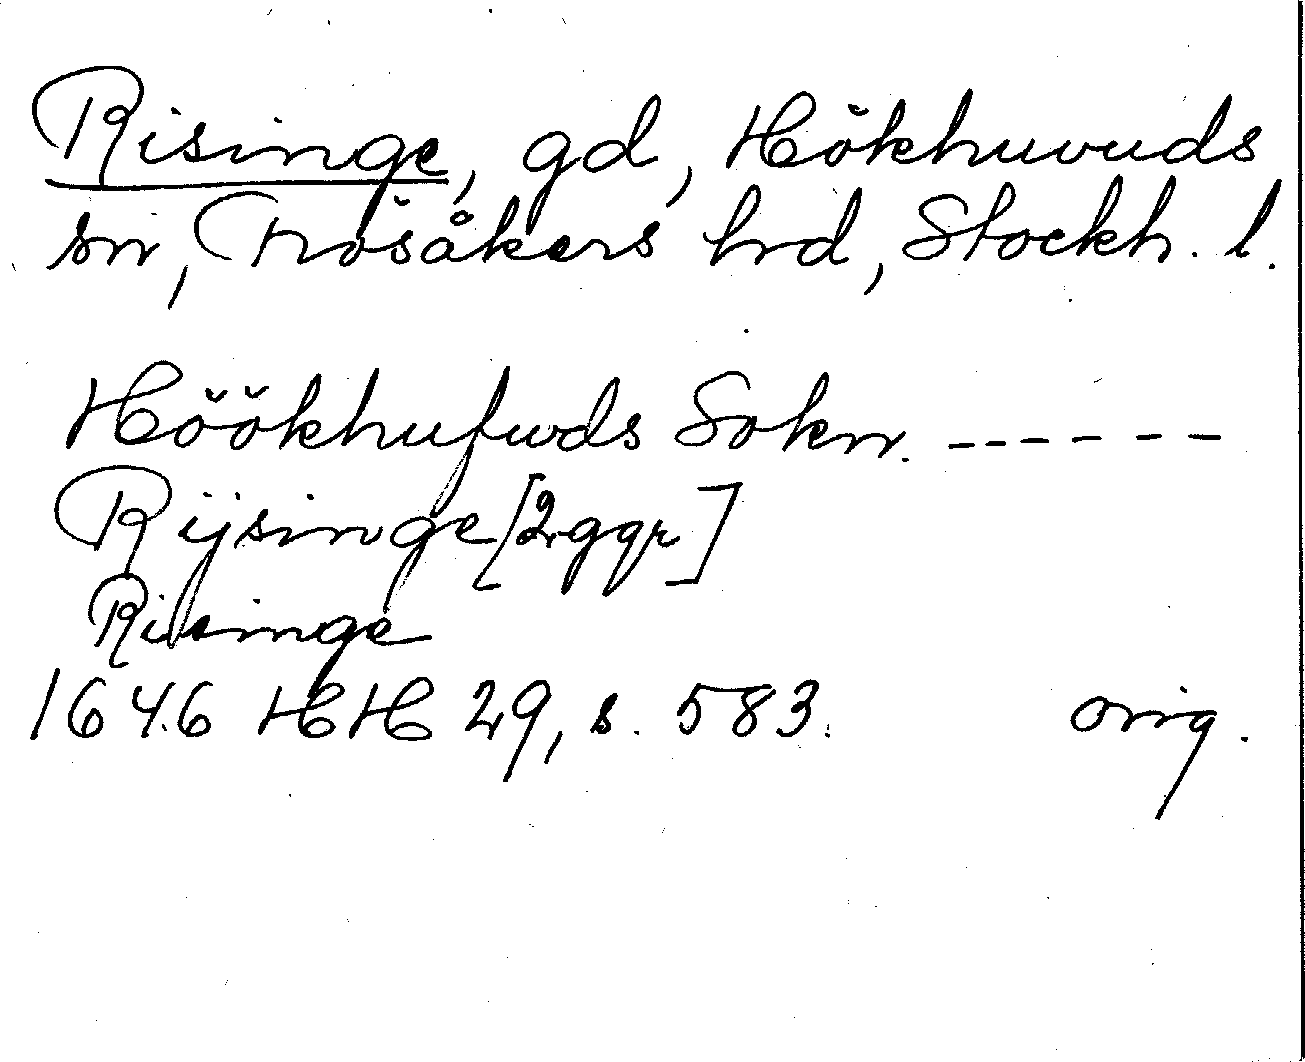 Risinge, gd, Hökhuvuds
sn, Frösåkers hrd, Stockh. l.
Höökhufwds Sokn. ------
Rijsinge [2 ggr]
Risinge
1646 HH 29, s. 583. orig.